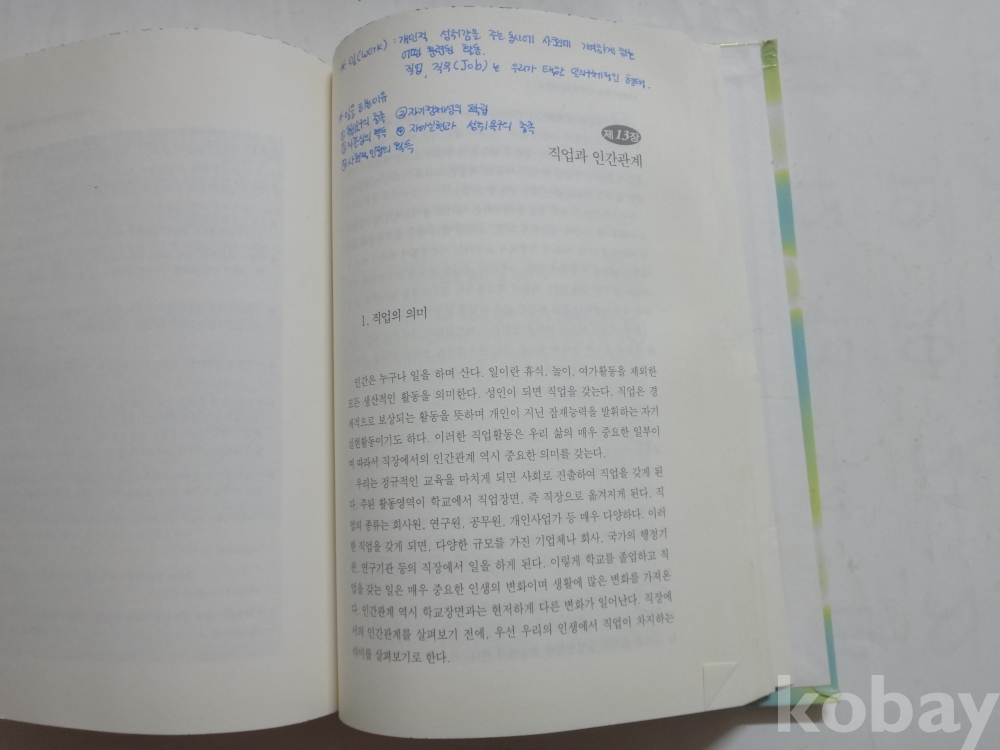 * 일(work) : 개인적 성취감을 주는 동시에 사회에 기여하게 되는
어떤 활동.
직업, 직무(Job)는 우리가 택한 일의 구체적인 형태.
* 일을 하는 이유
욕구의 충족 ② 자기정체성의 확립
획득 ④ 자아실현과 성취욕구의 충족
⑤ 사회적 인정의 획득
제13장
직업과 인간관계
1. 직업의 의미
인간은 누구나 일을 하며 산다. 일이란 휴식, 놀이, 여가활동을 제외한
모든 생산적인 활동을 의미한다. 성인이 되면 직업을 갖는다. 직업은 경
제적으로 보상되는 활동을 뜻하며 개인이 지닌 잠재능력을 발휘하는 자기
실현활동이기도 하다. 이러한 직업활동은 우리 삶의 매우 중요한 일부이
며 따라서 직장에서의 인간관계 역시 중요한 의미를 갖는다.
우리는 정규적인 교육을 마치게 되면 사회로 진출하여 직업을 갖게 된
다. 주된 활동영역이 학교에서 직업장면, 즉 직장으로 옮겨지게 된다. 직
업의 종류는 회사원, 연구원, 공무원, 개인사업가 등 매우 다양하다. 이러
한 직업을 갖게 되면, 다양한 규모를 가진 기업체나 회사, 국가의 행정기
관, 연구기관 등의 직장에서 일을 하게 된다. 이렇게 학교를 졸업하고 직
업을 갖는 일은 매우 중요한 인생의 변화이며 생활에 많은 변화를 가져온
다. 인간관계 역시 학교장면과는 현저하게 다른 변화가 일어난다. 직장에
서의 인간관계를 살펴보기 전에, 우선 우리의 인생에서 직업이 차지하는
의미를 살펴보기로 한다.
kobay